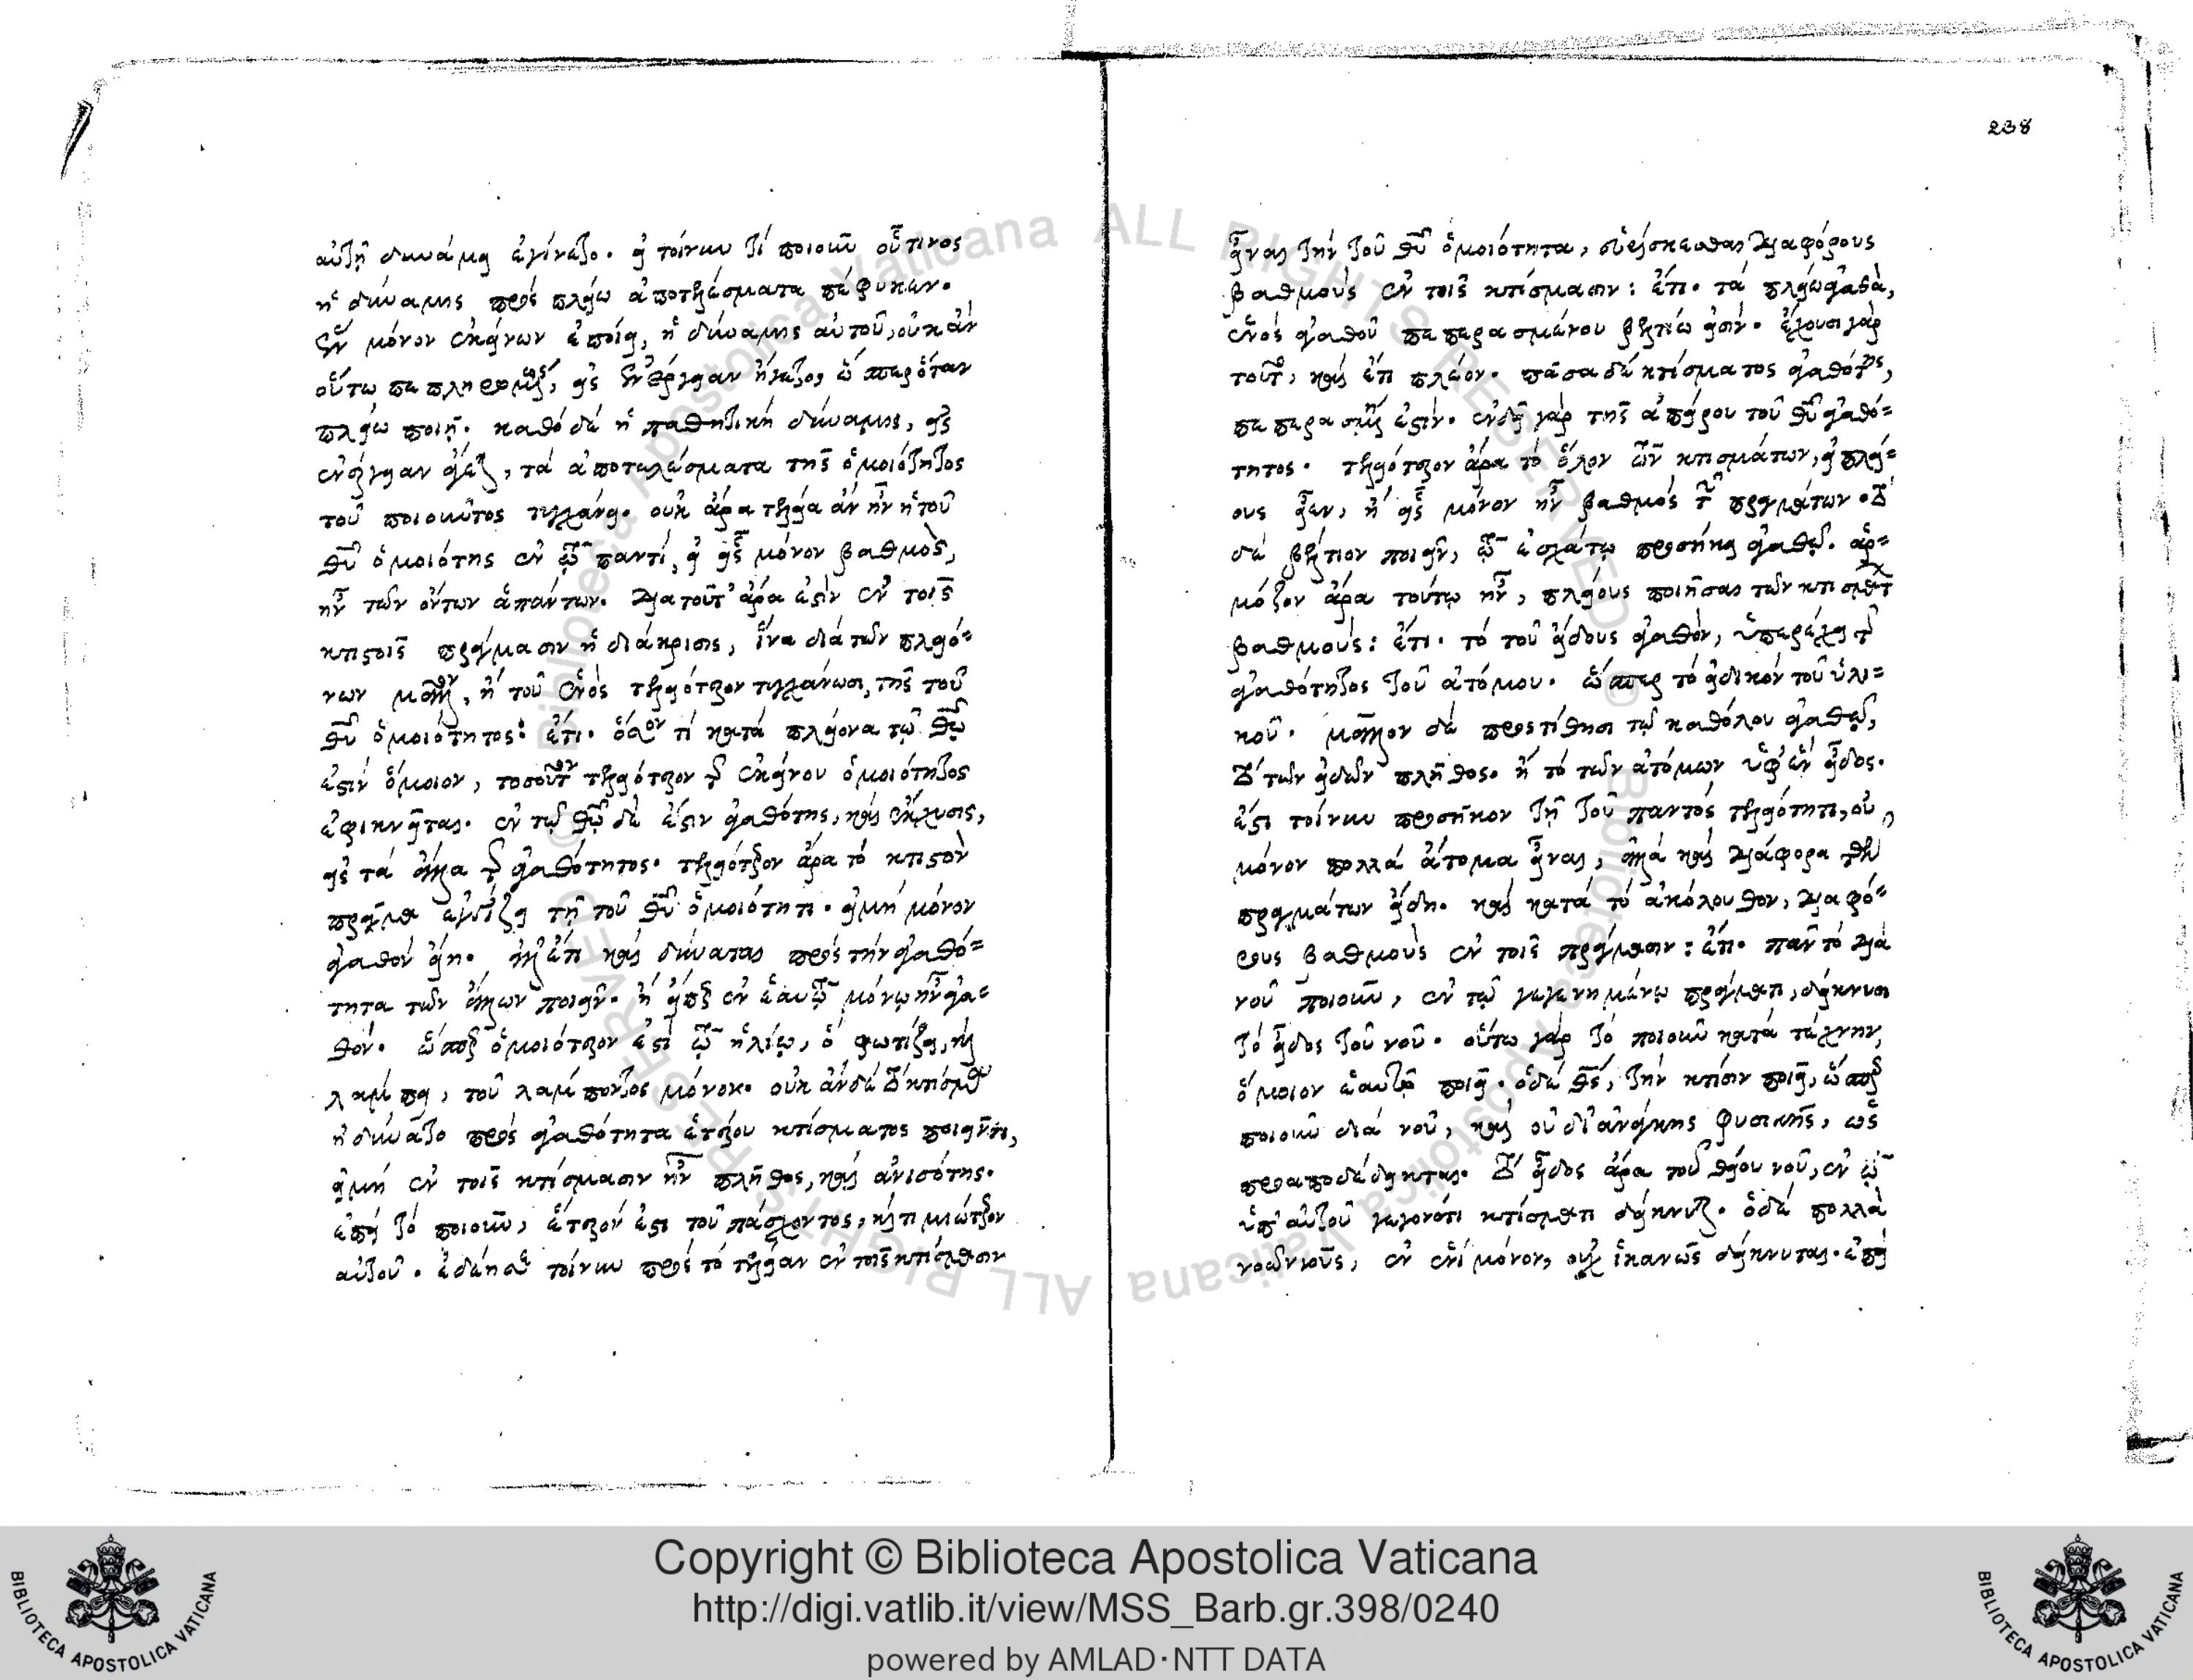 αὐτῇ δυνάμει ἐγίνετο. εἰ τοίνυν τί ποιοῦν οὗτινος
ἡ δύναμις πρὸς πλείω ἀποτελέσματα πέφυκεν.
ἓν μόνον ἐκείνων ἐποίει, ἡ δύναμις αὐτοῦ, οὐκ ἂν
οὕτω εἰς ἐνέργειαν ἤγετο, ὥσπερ ὅταν
πλείω ποιῇ. καθὸ δὲ ἡ παθητικὴ δύναμις, εἰς
ἐνέργειαν ἄγεται, τὰ ἀποτελέσματα τῆς ὁμοιότητος
τοῦ ποιοῦντος τυγχάνει. οὐκ ἄρα τελεία ἂν ἦν ἡ τοῦ
θῦ ὁμοιότης ἐν τῷ παντί, εἰ εἷς μόνον βαθμὸς,
ἦν τῶν ὄντων ἁπάντων. διατοῦτ' ἄρα ἐστὶν ἐν τοῖς
κτιστοῖς πράγμασιν ἡ διάκρισις, ἵνα διὰ τῶν πλειό=
νων μᾶλλον, ἢ τοῦ ἑνὸς τελειότερον τυγχάνωσι, τῆς τοῦ
θῦ ὁμοιότητος: ἔτι. ὅσον τί κατὰ πλείονα τῷ θῷ
ἐστὶν ὅμοιον, τοσοῦτον τελειότερον τῆς ἐκείνου ὁμοιότητος
ἐφικνεῖται. ἐν τῷ θῷ δὲ ἐστὶν ἀγαθότης, καὶ ἔκχυσις,
εἰς τὰ ἄλλα τῆς ἀγαθότητος. τελειότερον ἄρα τὸ κτιστὸν
πρᾶγμα ἐγγίζει τῇ τοῦ θῦ ὁμοιότητι. εἰ μὴ μόνον
ἀγαθὸν εἴη. ἀλλ' ἔτι καὶ δύναται πρὸς τὴν ἀγαθό=
τητα τῶν ἄλλων ποιεῖν. ἢ εἴπερ ἐν ἑαυτῷ μόνῳ ἦν ἀγα=
θόν. ὥσπερ ὁμοιότερον ἐστὶ τῷ ἡλίῳ, ὃ φωτίζει, καὶ
λάμπει, τοῦ λάμποντος μόνον. οὐκ ἂν δὲ τὸ κτίσμα
ἠδύνατο πρὸς ἀγαθότητα ἑτέρου κτίσματος ποιεῖν τι,
εἰ μὴ ἐν τοῖς κτίσμασιν ἦν πλῆθος, καὶ ἀνισότης.
ἐπεὶ τὸ ποιοῦν, ἕτερον ἐστι τοῦ πάσχοντος, καὶ τιμιώτερον
αὐτοῦ. ἐδέησε τοίνυν πρὸς τὸ τελείαν ἐν τοῖς κτίσμασιν
238
εἶναι τὴν τοῦ θῦ ὁμοιότητα, εὑρίσκεσθαι διαφόρους
βαθμοὺς ἐν τοῖς κτίσμασιν: ἔτι. τὰ πλείω ἀγαθὰ,
ἑνὸς ἀγαθοῦ πεπερασμένου βελτίω εἰσίν. ἔχουσι γὰρ
τοῦτο, καὶ ἔτι πλέον. πᾶσα δὲ κτίσματος ἀγαθότης,
πεπερασμένη ἐστίν. ἐνδεῖ γὰρ τῆς ἀπείρου τοῦ θῦ ἀγαθό=
τητος. τελειότερον ἄρα τὸ ὅλον τῶν κτισμάτων, εἰ πλεί=
ους εἶεν, ἢ εἷς μόνον ἦν βαθμὸς τῶν πραγμάτων. τὸ
δὲ βέλτιον ποιεῖν, τῷ ἐσχάτῳ προσήκει ἀγαθῷ. ἁρ=
μόζον ἄρα τούτῳ ἦν, πλείους ποιῆσαι τῶν κτισμάτων
βαθμούς: ἔτι. τὸ τοῦ εἴδους ἀγαθὸν, ὑπερέχει τῆς
ἀγαθότητος τοῦ ἀτόμου. ὥσπερ τὸ εἰδικὸν τοῦ ὑλι=
κοῦ. μᾶλλον δὲ προστίθησι τῷ καθόλου ἀγαθῷ,
τὸ τῶν εἰδῶν πλῆθος. ἢ τὸ τῶν ἀτόμων ὑφ' ἓν εἶδος.
ἔστι τοίνυν προσῆκον τῇ τοῦ παντὸς τελειότητι, οὐ
μόνον πολλὰ ἄτομα εἶναι, ἀλλὰ καὶ διάφορα τῶν
πραγμάτων εἴδη. καὶ κατὰ τὸ ἀκόλουθον, διαφό=
ρους βαθμοὺς ἐν τοῖς πράγμασιν: ἔτι. πᾶν τὸ διὰ
νοῦ ποιοῦν, ἐν τῷ γεγενημένῳ πράγματι, δείκνυσι
τὸ εἶδος τοῦ νοῦ. οὕτω γὰρ τὸ ποιοῦν κατὰ τέχνην,
ὅμοιον ἑαυτῷ ποιεῖ. ὁ δὲ θς, τὴν κτίσιν ποιεῖ, ὥσπερ
ποιοῦν διὰ νοῦ, καὶ οὐ δι' ἀνάγκης φυσικῆς, ὡς
προαποδέδεικται. τὸ εἶδος ἄρα τοῦ θείου νοῦ, ἐν τῷ
ὑπ' αὐτοῦ γεγονότι κτίσματι δείκνυται. ὁ δὲ πολλὰ
νοῶν νοῦς, ἐν ἑνὶ μόνον, οὐχ ἱκανῶς δείκνυται. ἐπεὶ
Copyright © Biblioteca Apostolica Vaticana
http://digi.vatlib.it/view/MSS_Barb.gr.398/0240
powered by AMLAD·NTT DATA
BIBLIOTECA APOSTOLICA VATICANA
BIBLIOTECA APOSTOLICA VATICANA